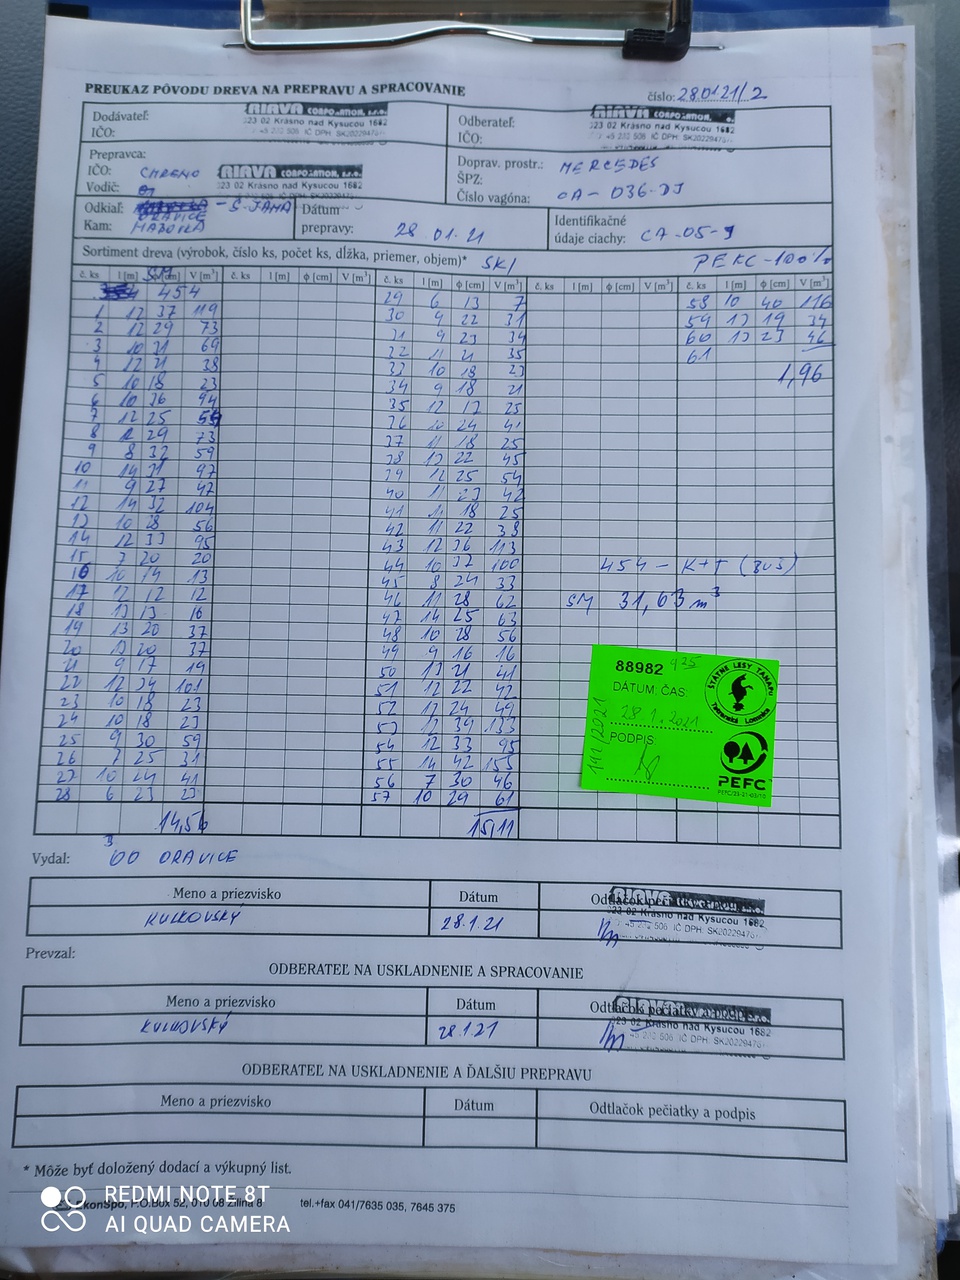 PREUKAZ PÔVODU DREVA NA PREPRAVU A SPRACOVANIE
číslo: 280121/2
Dodávateľ:
IČO:
RIAVA CORPORATION, s.r.o.
023 02 Krásno nad Kysucou 1682
Odberateľ:
IČO:
RIAVA CORPORATION, s.r.o.
023 02 Krásno nad Kysucou 1682
Prepravca:
IČO: CHRENO
Vodič:
RIAVA CORPORATION, s.r.o.
023 02 Krásno nad Kysucou 1682
Doprav. prostr.: MERCEDES
ŠPZ:
Číslo vagóna: CA - 036-DJ
Odkiaľ: ORAVICE - S. JAMA
Kam:
Dátum
prepravy: 28.01.21
Identifikačné
údaje ciachy: CA-05-9
Sortiment dreva (výrobok, číslo ks, počet ks, dĺžka, priemer, objem)* SKI
PEKC-100%
č. ks l [m] ϕ [cm] V [m³] č. ks l [m] ϕ [cm] V [m³] č. ks l [m] ϕ [cm] V [m³] č. ks l [m] ϕ [cm] V [m³] č. ks l [m] ϕ [cm] V [m³]
454
1 12 37 119
2 12 29 73
3 10 31 69
4 12 21 38
5 10 18 23
6 10 36 94
7 12 25 54
8 12 29 73
9 8 32 59
10 14 31 97
11 9 27 47
12 14 32 104
13 10 28 56
14 12 33 95
15 7 20 20
16 10 14 13
17 12 12 12
18 13 13 16
19 13 20 37
20 13 20 37
21 9 17 19
22 12 34 101
23 10 18 23
24 10 18 23
25 9 30 59
26 7 25 31
27 10 24 41
28 6 23 23
14,56
29 6 13 7
30 9 22 31
31 9 23 34
32 11 21 35
33 10 18 23
34 9 18 21
35 12 17 25
36 10 24 41
37 11 18 25
38 13 22 45
39 12 25 54
40 11 23 42
41 11 18 25
42 11 22 38
43 12 36 113
44 10 37 100
45 8 24 33
46 11 28 62
47 14 25 63
48 10 28 56
49 9 16 16
50 13 21 41
51 12 22 42
52 12 24 49
53 12 39 133
54 12 33 95
55 14 42 155
56 7 30 46
57 10 29 61
15,11
58 10 40 116
59 13 19 34
60 13 23 46
61
1,96
454 - K+T (BUŠ)
SM 31,63 m³
88982 935
DÁTUM: ČAS:
28.1.2021
PODPIS:
191/2021
ŠTÁTNE LESY TANAPU
Tatranská Lomnica
PEFC
Vydal: OO ORAVICE
Meno a priezvisko Dátum Odtlačok pečiatky a podpis
KULKOVSKÝ 28.1.21
RIAVA CORPORATION, s.r.o.
023 02 Krásno nad Kysucou 1682
Prevzal:
ODBERATEĽ NA USKLADNENIE A SPRACOVANIE
Meno a priezvisko Dátum Odtlačok pečiatky a podpis
KULKOVSKÝ 28.1.21
RIAVA CORPORATION, s.r.o.
023 02 Krásno nad Kysucou 1682
ODBERATEĽ NA USKLADNENIE A ĎALŠIU PREPRAVU
Meno a priezvisko Dátum Odtlačok pečiatky a podpis
* Môže byť doložený dodací a výkupný list.
EkonSpo, P.O.Box 52, 010 08 Žilina 8 tel.+fax 041/7635 035, 7645 375
REDMI NOTE 8T
AI QUAD CAMERA